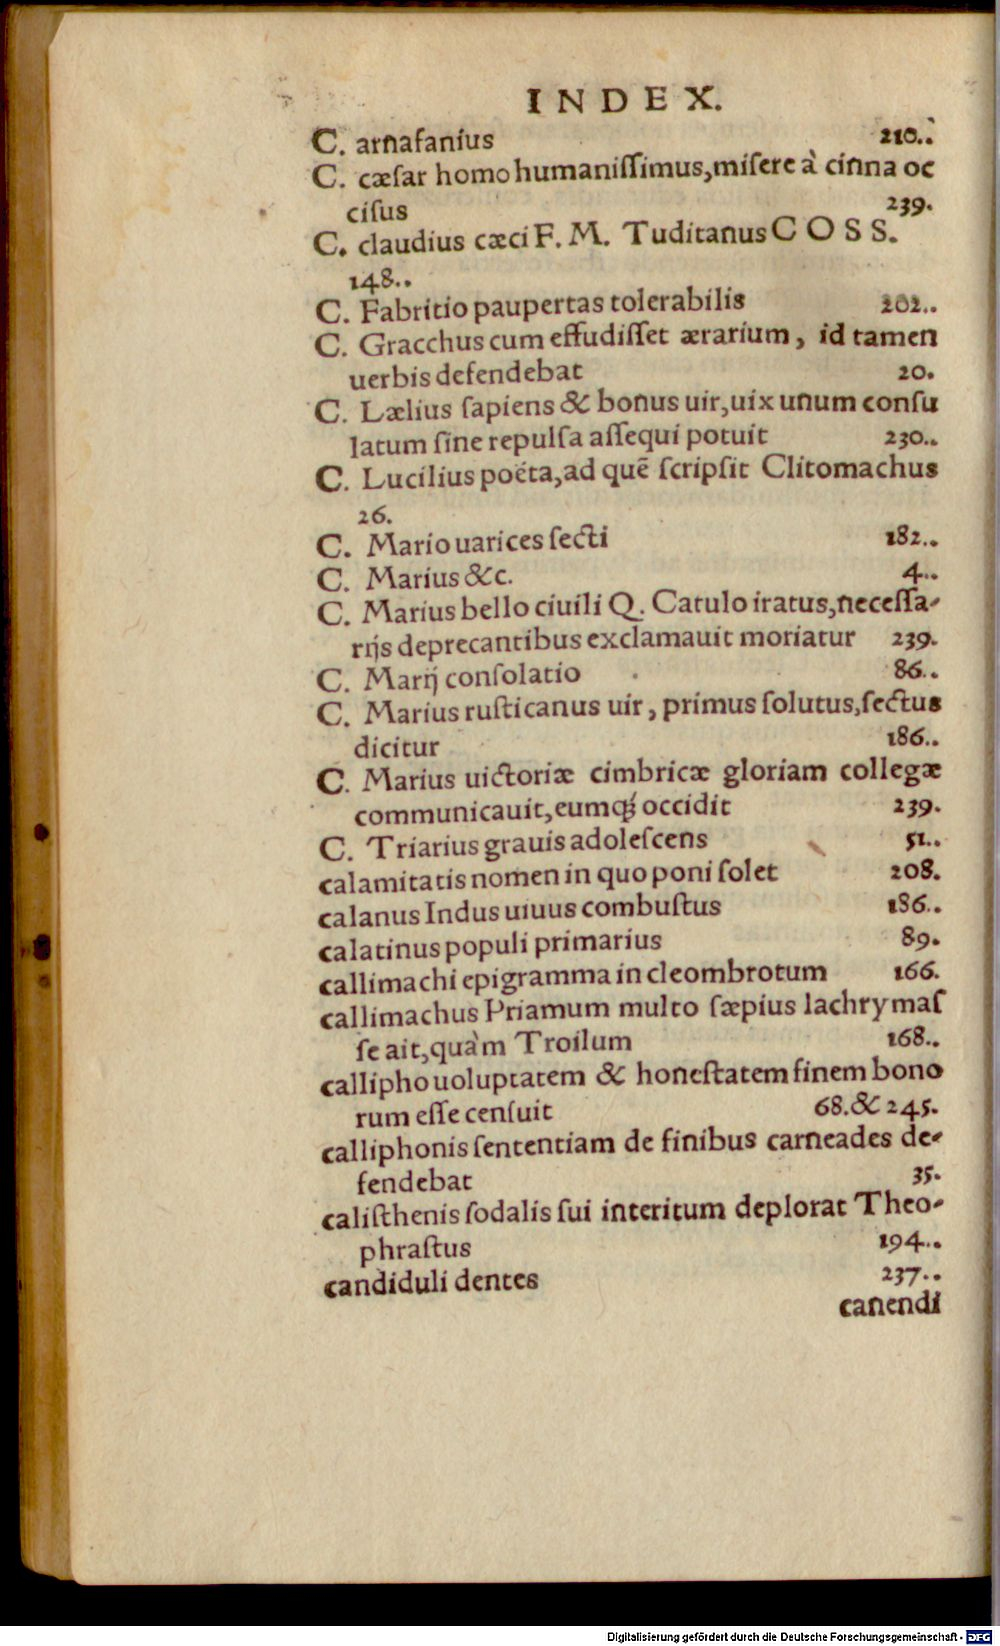 INDEX.
C. arnafanius 210..
C. cæſar homo humaniſſimus, miſere à cinna oc
ciſus 239.
C. claudius cæci F. M. Tuditanus COSS.
148..
C. Fabritio paupertas tolerabilis 202..
C. Gracchus cum effudiſſet ærarium, id tamen
uerbis defendebat 20.
C. Lælius ſapiens & bonus uir, uix unum conſu
latum ſine repulſa aſſequi potuit 230..
C. Lucilius poëta, ad quē ſcripſit Clitomachus
26.
C. Mario uarices ſecti 182..
C. Marius &c. 4..
C. Marius bello ciuili Q. Catulo iratus, neceſſa-
rijs deprecantibus exclamauit moriatur 239.
C. Marij conſolatio 86..
C. Marius ruſticanus uir, primus ſolutus, ſectus
dicitur 186..
C. Marius uictoriæ cimbricæ gloriam collegæ
communicauit, eumq́ꝫ occidit 239.
C. Triarius grauis adoleſcens 51..
calamitatis nomen in quo poni ſolet 208.
calanus Indus uiuus combuſtus 186..
calatinus populi primarius 89.
callimachi epigramma in cleombrotum 166.
callimachus Priamum multo ſæpius lachrymaſ
ſe ait, quàm Troilum 168..
callipho uoluptatem & honeſtatem finem bono
rum eſſe cenſuit 68. & 245.
calliphonis ſententiam de finibus carneades de-
fendebat 35.
caliſthenis ſodalis ſui interitum deplorat Theo-
phraſtus 194..
candiduli dentes 237..
canendi
Digitalisierung gefördert durch die Deutsche Forschungsgemeinschaft - DFG